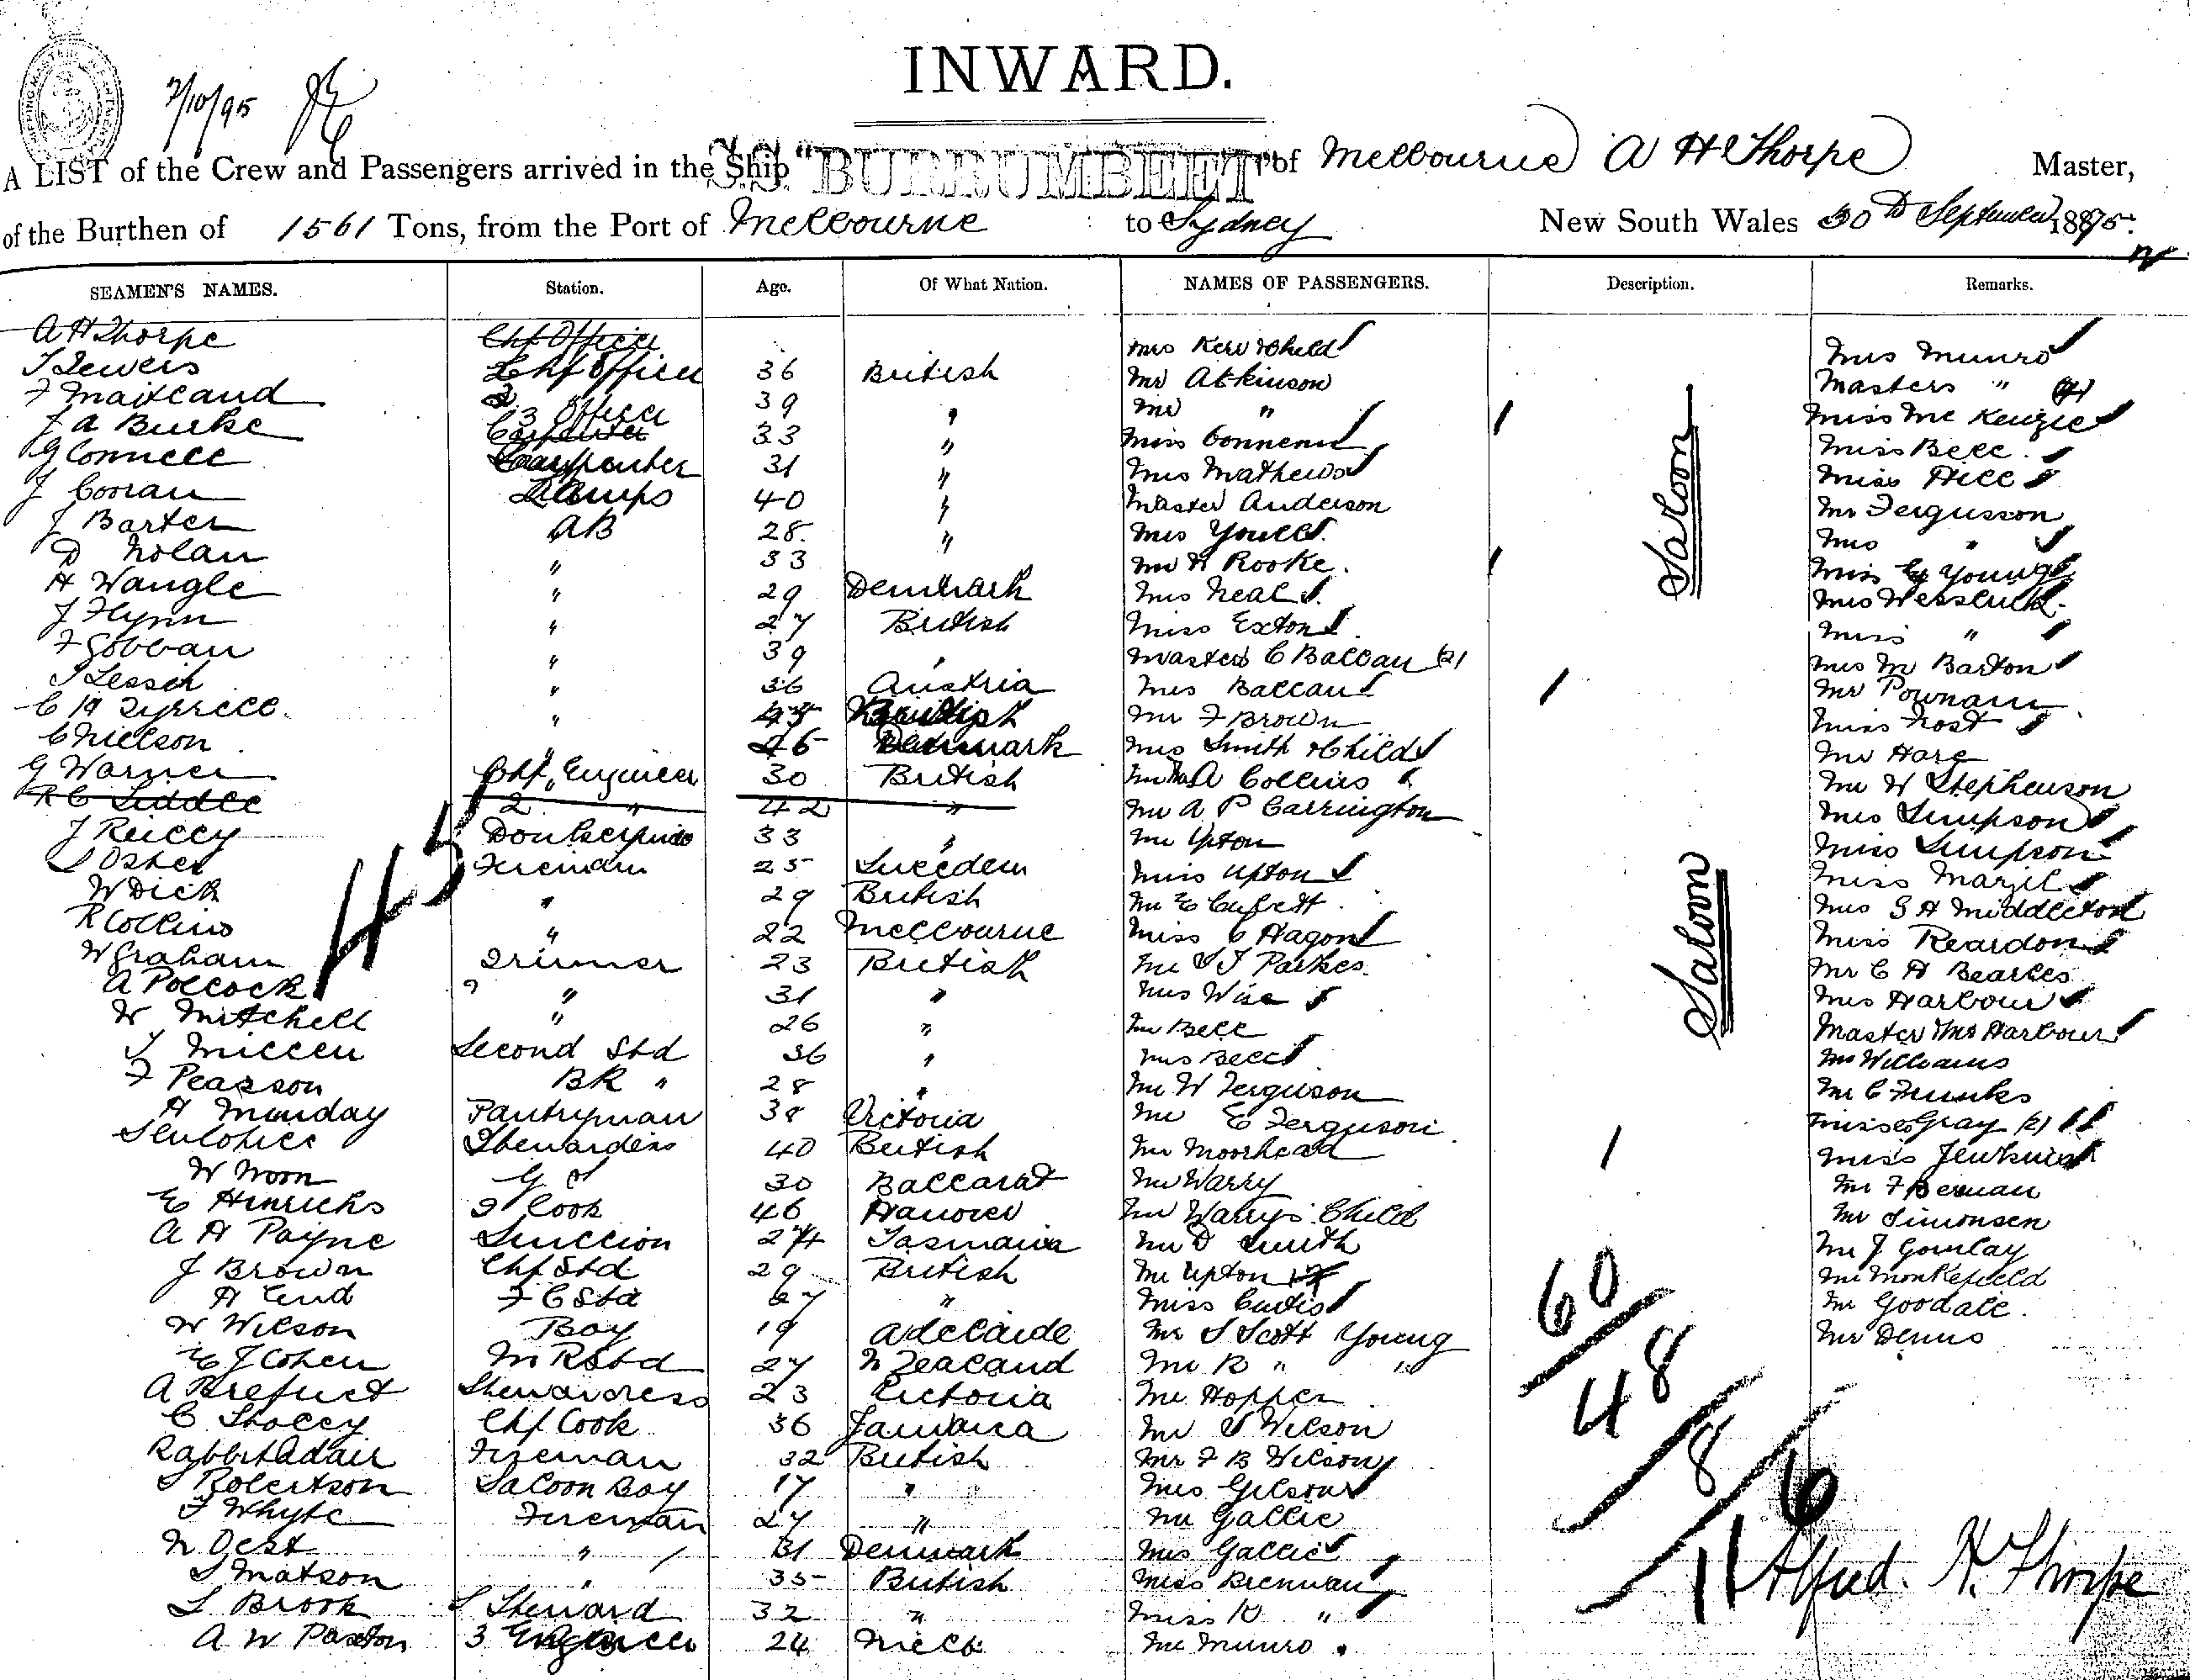 INWARD.
2/10/95
A LIST of the Crew and Passengers arrived in the Ship S.S. "BURRUMBEET" of Melbourne A H Thorpe Master,
of the Burthen of 1561 Tons, from the Port of Melbourne to Sydney New South Wales 30th September 1895.
SEAMEN'S NAMES. Station. Age. Of What Nation. NAMES OF PASSENGERS. Description. Remarks.
A H Thorpe Chf Officer Mrs Kew & Child Mrs Munro
Chf Officer 36 British Mr Atkinson Masters " (4)
F Maitland 2 " 39 " Mr " Miss McKenzie
J A Burke 3 Officer 33 " Miss Miss Bell
G Connell Carpenter 31 " Mrs Mathews Miss Hill
J Lamps 40 " Master Anderson Mr Fergusson
J Barter AB 28 " Mrs Youll Mrs "
D Nolan " 33 Mr H Rooke Miss Young
H Wangle " 29 Denmark Mrs Neal Mrs
J Flynn " 27 British Miss Exton Miss "
F Gobban " 39 " Masters C Ballau (2) Mrs M Barton
" 36 Austria Mrs Ballau Mr
C Tyrrell " 45 British Mr F Brown Miss Frost
C Nielson " 26 Denmark Mrs Smith & Child Mr Hare
G Warner Chf Engineer 30 British A Collins Mr W Stephenson
R C Liddle 2 " 42 " Mr A P Carrington Mrs Simpson
J Reilly 33 " Mr Upton Miss Simpson
Fireman 25 Sweeden Miss Upton Miss
W Dick " 29 British Mr E Mrs S A Middleton
R Collins " 22 Melbourne Miss C Hagon Miss Reardon
W Graham Trimmer 23 British Mr Parkes Mr C H
A Pollock " 31 " Mrs Wise Mrs Harbour
W Mitchell " 26 " Mr Bell Master Harbour
Second Std 36 " Mrs Bell Mr Williams
F Pearson BR " 28 " Mr W Ferguson Mr C
A Munday Pantryman 38 Victoria Mr E Ferguson Misses Gray (2)
Stewardess 40 British Mr Moorhead Miss Jenkins
W Noon 30 Ballarat Mr Warry Mr F
E Hinrichs 2 Cook 46 Hanover Mr Warrys Child Mr Simonsen
A H Payne Scullion 24 Tasmania Mr D Smith Mr J Gourlay
J Brown Chf Std 29 British Mr Upton Mr Monkefield
F C Std 27 " Miss Curtis Mr Goodall
W Wilson Boy 19 Adelaide Mr S Scott Young Mr Denis
E J Cohen M R Std 27 N Zealand Mr R " "
A Stewardess 23 Victoria Mr Hopper
C Chf Cook 36 Jamaica Mr Wilson
Robbert Adair Fireman 32 British Mr F B Wilson
Robertson Saloon Boy 17 " Mrs Gilson
F Whyte Fireman 27 " Mr Gallie
N " 31 Denmark Mrs Gallie
Matson " 35 British Miss Brennan
Brook Steward 32 " Miss K "
A W Paxton 3 Engineer 24 Melb Mr Munro
Saloon
Saloon
45
60
48
8
116
Alfred. H. Thorpe